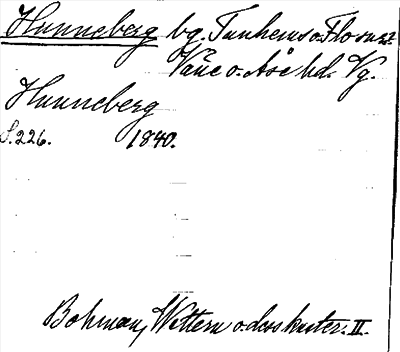 Hunneberg bg. Tunhems o. Flo sn:r
Väne o. Åse hd. Vg.
Hunneberg
S. 226. 1840.
Bohman, Wettern o. dess kuster. II.